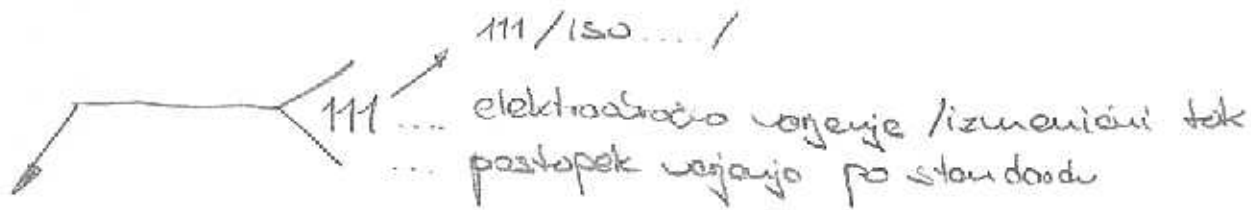 111/ISO..... /
111 .... elektroobločno varjenje /izmenični tok
.... postopek varjenja po standardu